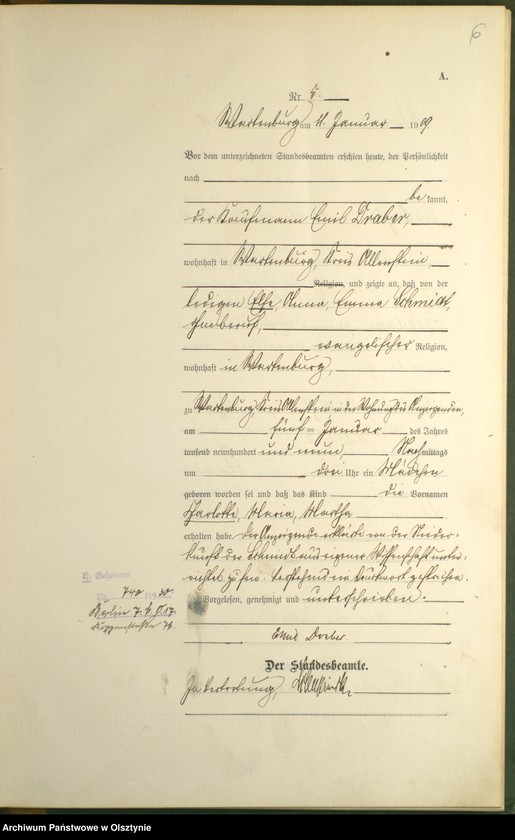 6
A.
Nr. 5.
Wartenburg am 11. Januar 1909.
Vor dem unterzeichneten Standesbeamten erschien heute, der Persönlichkeit
nach
be kannt,
der Kaufmann Emil Draber,
wohnhaft in Wartenburg, Kreis Allenstein,
Religion, und zeigte an, daß von der
ledigen Else, Anna, Emma Schmidt,
ohne Beruf,
evangelischer Religion,
wohnhaft in Wartenburg,
zu Wartenburg, Kreis Allenstein in der Wohnung des Anzeigenden,
am fünf ten Januar des Jahres
tausend neunhundert und neun, Nach mittags
um drei Uhr ein Mädchen
geboren worden sei und daß das Kind die Vornamen
Charlotte, Maria, Martha
erhalten habe. Der Anzeigende erklärte von der Nieder-
kunft der Schmidt aus eigener Wissenschaft unter-
richtet zu sein. Vorstehend ein Druckwort gestrichen.
Vorgelesen, genehmigt und unterschrieben.
Emil Draber.
Der Standesbeamte.
In Vertretung,
H. Geheiratet
Nr. 740 1930
Berlin